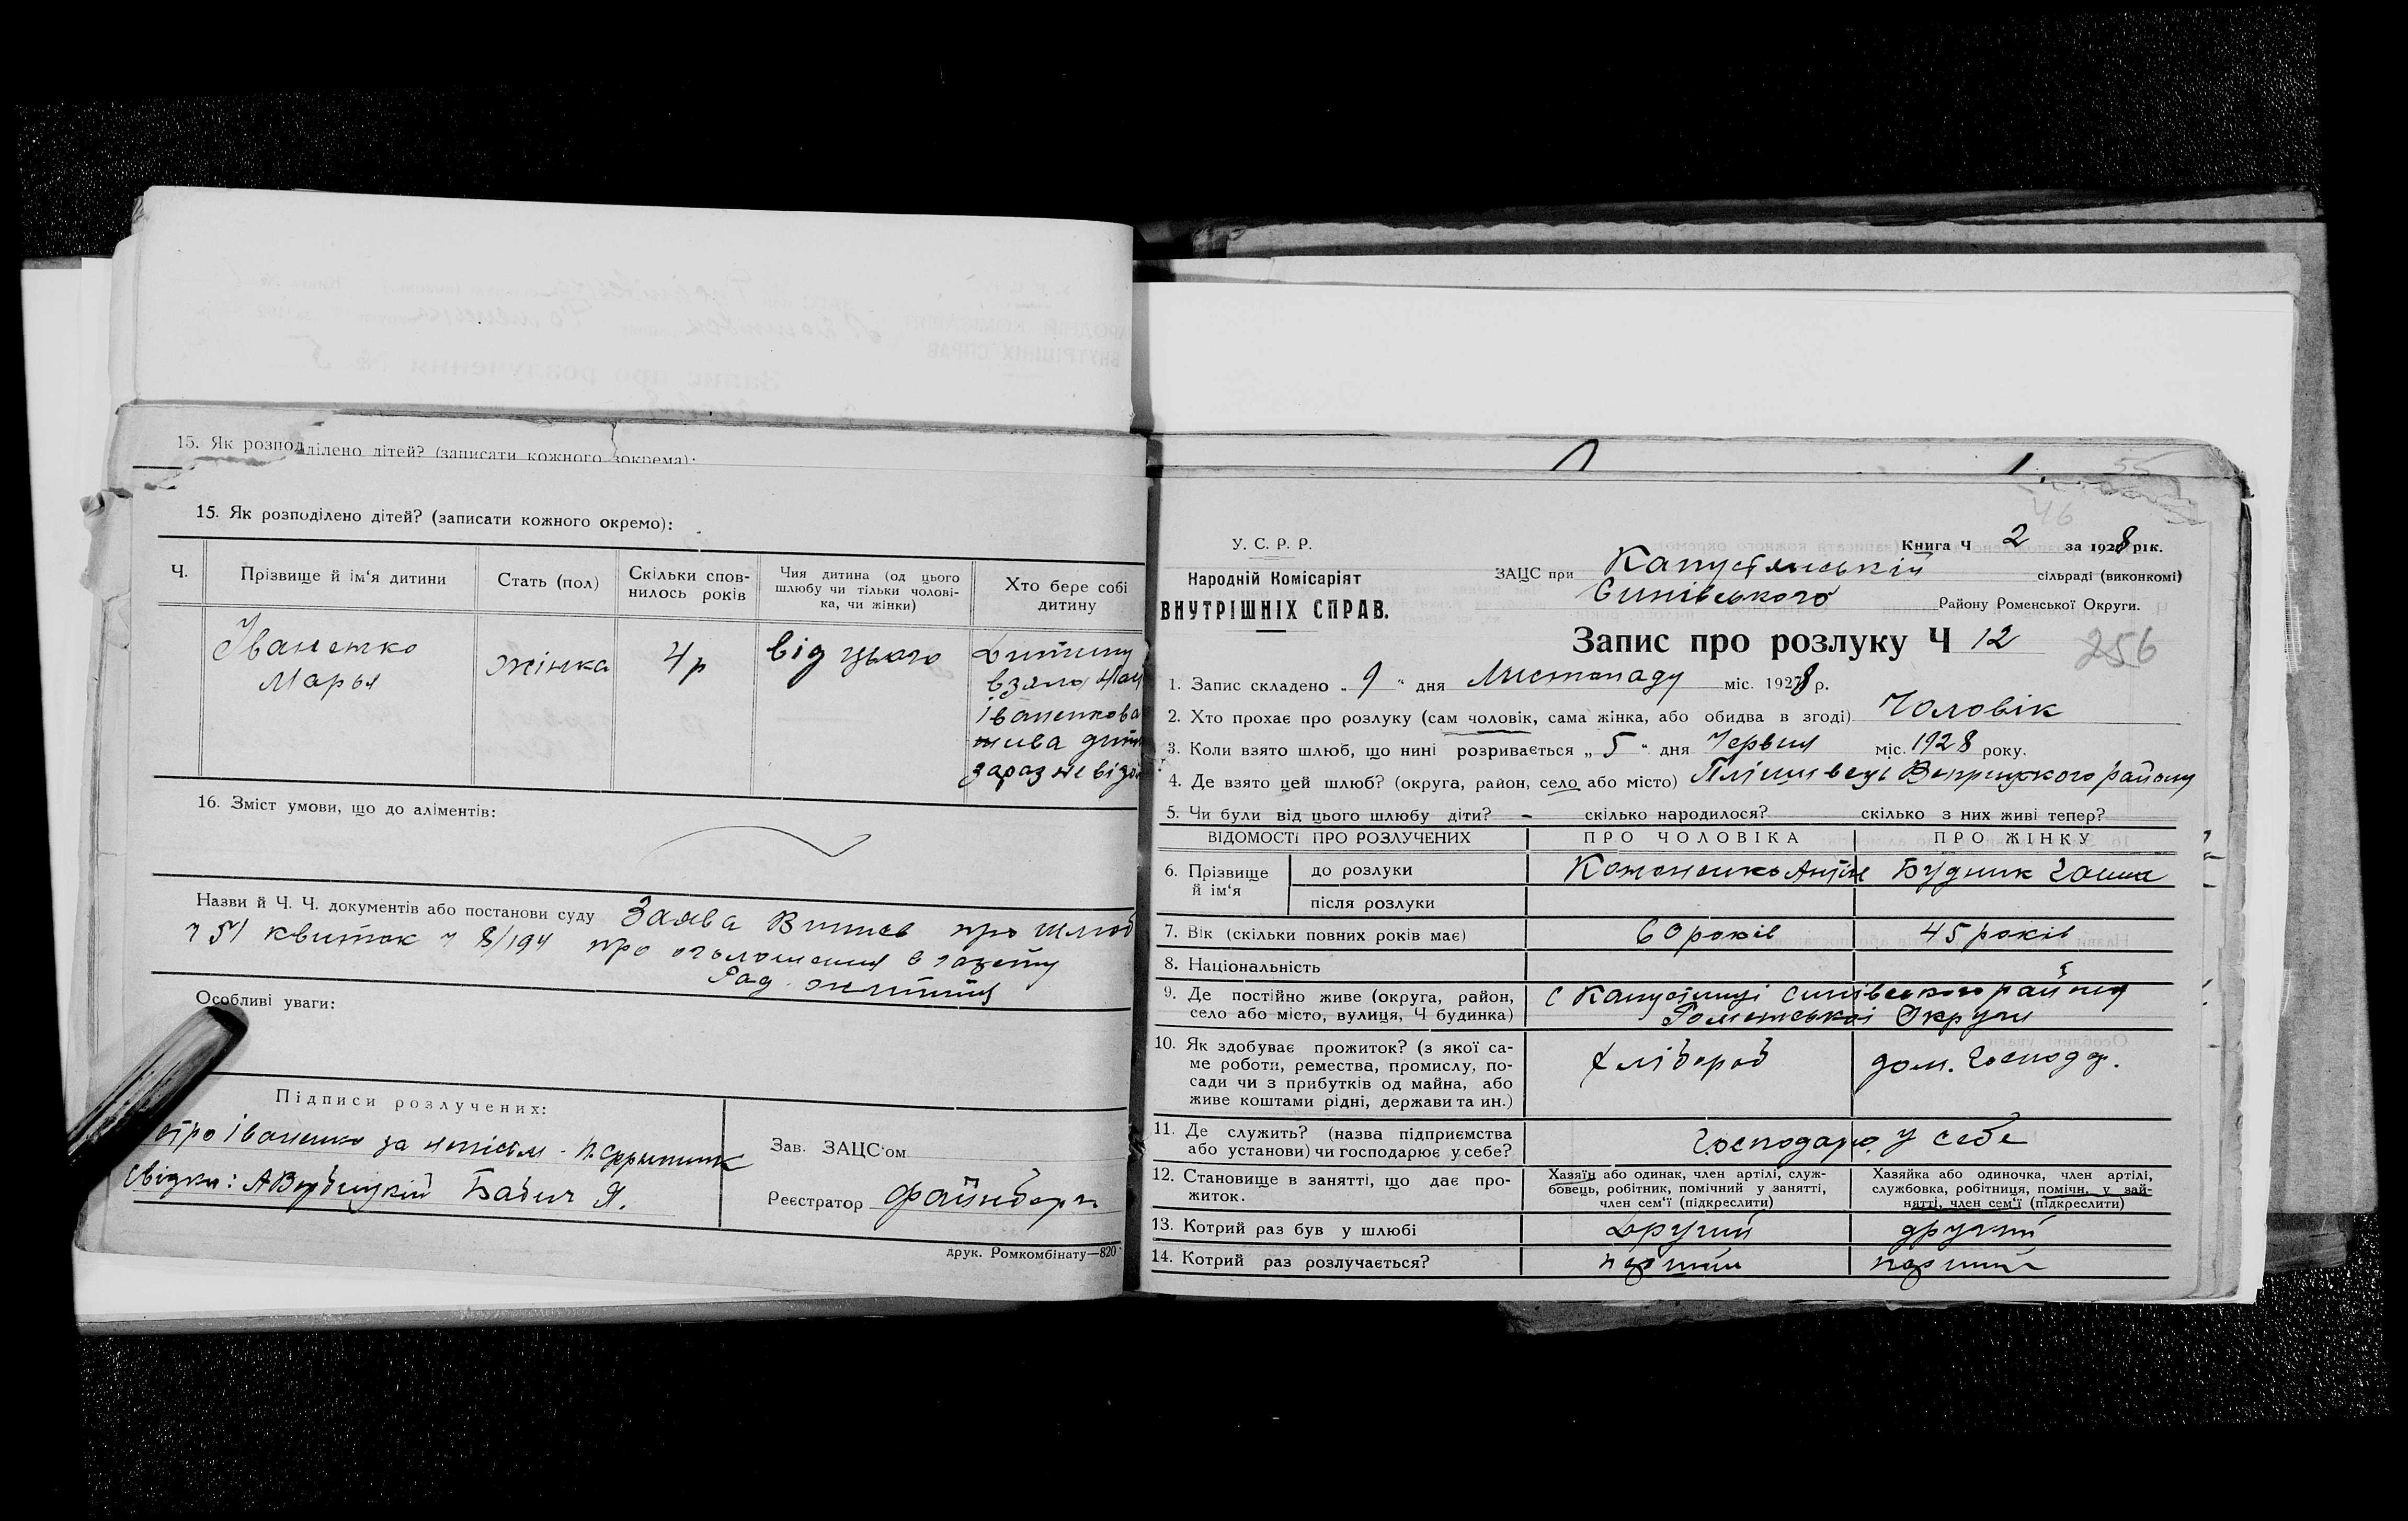 15. Як розподілено дітей? (записати кожного зокрема):
15. Як розподілено дітей? (записати кожного окремо):
Ч. Прізвище й ім‘я дитини Стать (пол) Скільки спов- нилось років Чия дитина (од цього шлюбу чи тільки чолові- ка, чи жінки) Хто бере собі дитину
Іваненко Марья жінка 4 р від цього Дитину взяла
Іваненкова
зараз не
16. Зміст умови, що до аліментів:
Назви й Ч. Ч. документів або постанови суду Заява Витяг про шлюб
ч 51 квиток ч 8/194 про оголошення в газету
Рад. життя
Особливі уваги:
Підписи розлучених:
Іваненко за
Свідки: Бабич Я.
Зав. ЗАЦС‘ом
Реєстратор Файнберг
друк. Ромкомбінату—820
55
46
У. С. Р. Р.
Народній Комісаріят
ВНУТРІШНІХ СПРАВ.
Книга Ч 2 за 1928 рік.
ЗАЦС при Капустинській сільраді (виконкомі)
Синівського Району Роменської Округи.
Запис про розлуку Ч 12
256
1. Запис складено „ 9 “ дня Листопаду міс. 1928 р.
2. Хто прохає про розлуку (сам чоловік, сама жінка, або обидва в згоді) Чоловік
3. Коли взято шлюб, що нині розривається „ 5 “ дня Червня міс. 1928 року.
4. Де взято цей шлюб? (округа, район, село або місто) Плішивець району
5. Чи були від цього шлюбу діти? - скілько народилося? скілько з них живі тепер?
ВІДОМОСТІ ПРО РОЗЛУЧЕНИХ ПРО ЧОЛОВІКА ПРО ЖІНКУ
6. Прізвище й ім‘я до розлуки Антін Будник Ганна
після розлуки
7. Вік (скільки повних років має) 60 років 45 років
8. Національність
9. Де постійно живе (округа, район, село або місто, вулиця, Ч будинка) с Капустинці Синівського району
Роменської Округи
10. Як здобуває прожиток? (з якої са- ме роботи, ремества, промислу, по- сади чи з прибутків од майна, або живе коштами рідні, держави та ин.) хлібороб дом. Господар.
11. Де служить? (назва підприємства або установи) чи господарює у себе? Господарю у себе
12. Становище в занятті, що дає про- житок. Хазяїн або одинак, член артілі, служ- бовець, робітник, помічний у занятті, член сем‘ї (підкреслити) Хазяйка або одиночка, член артілі, службовка, робітниця, помічн. у зай- нятті, член сем‘ї (підкреслити)
13. Котрий раз був у шлюбі Другий другий
14. Котрий раз розлучається? перший перший